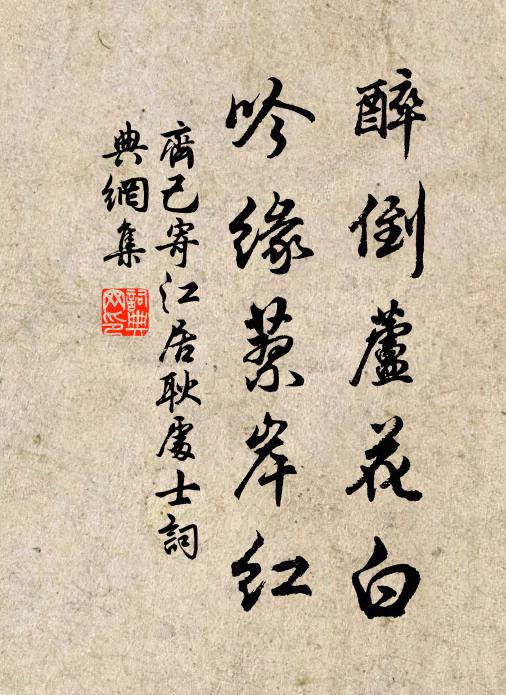 醉倒蘆花白
吟緣蓼岸紅
齊己寄江居耿處士詞
典網集
詞典網印